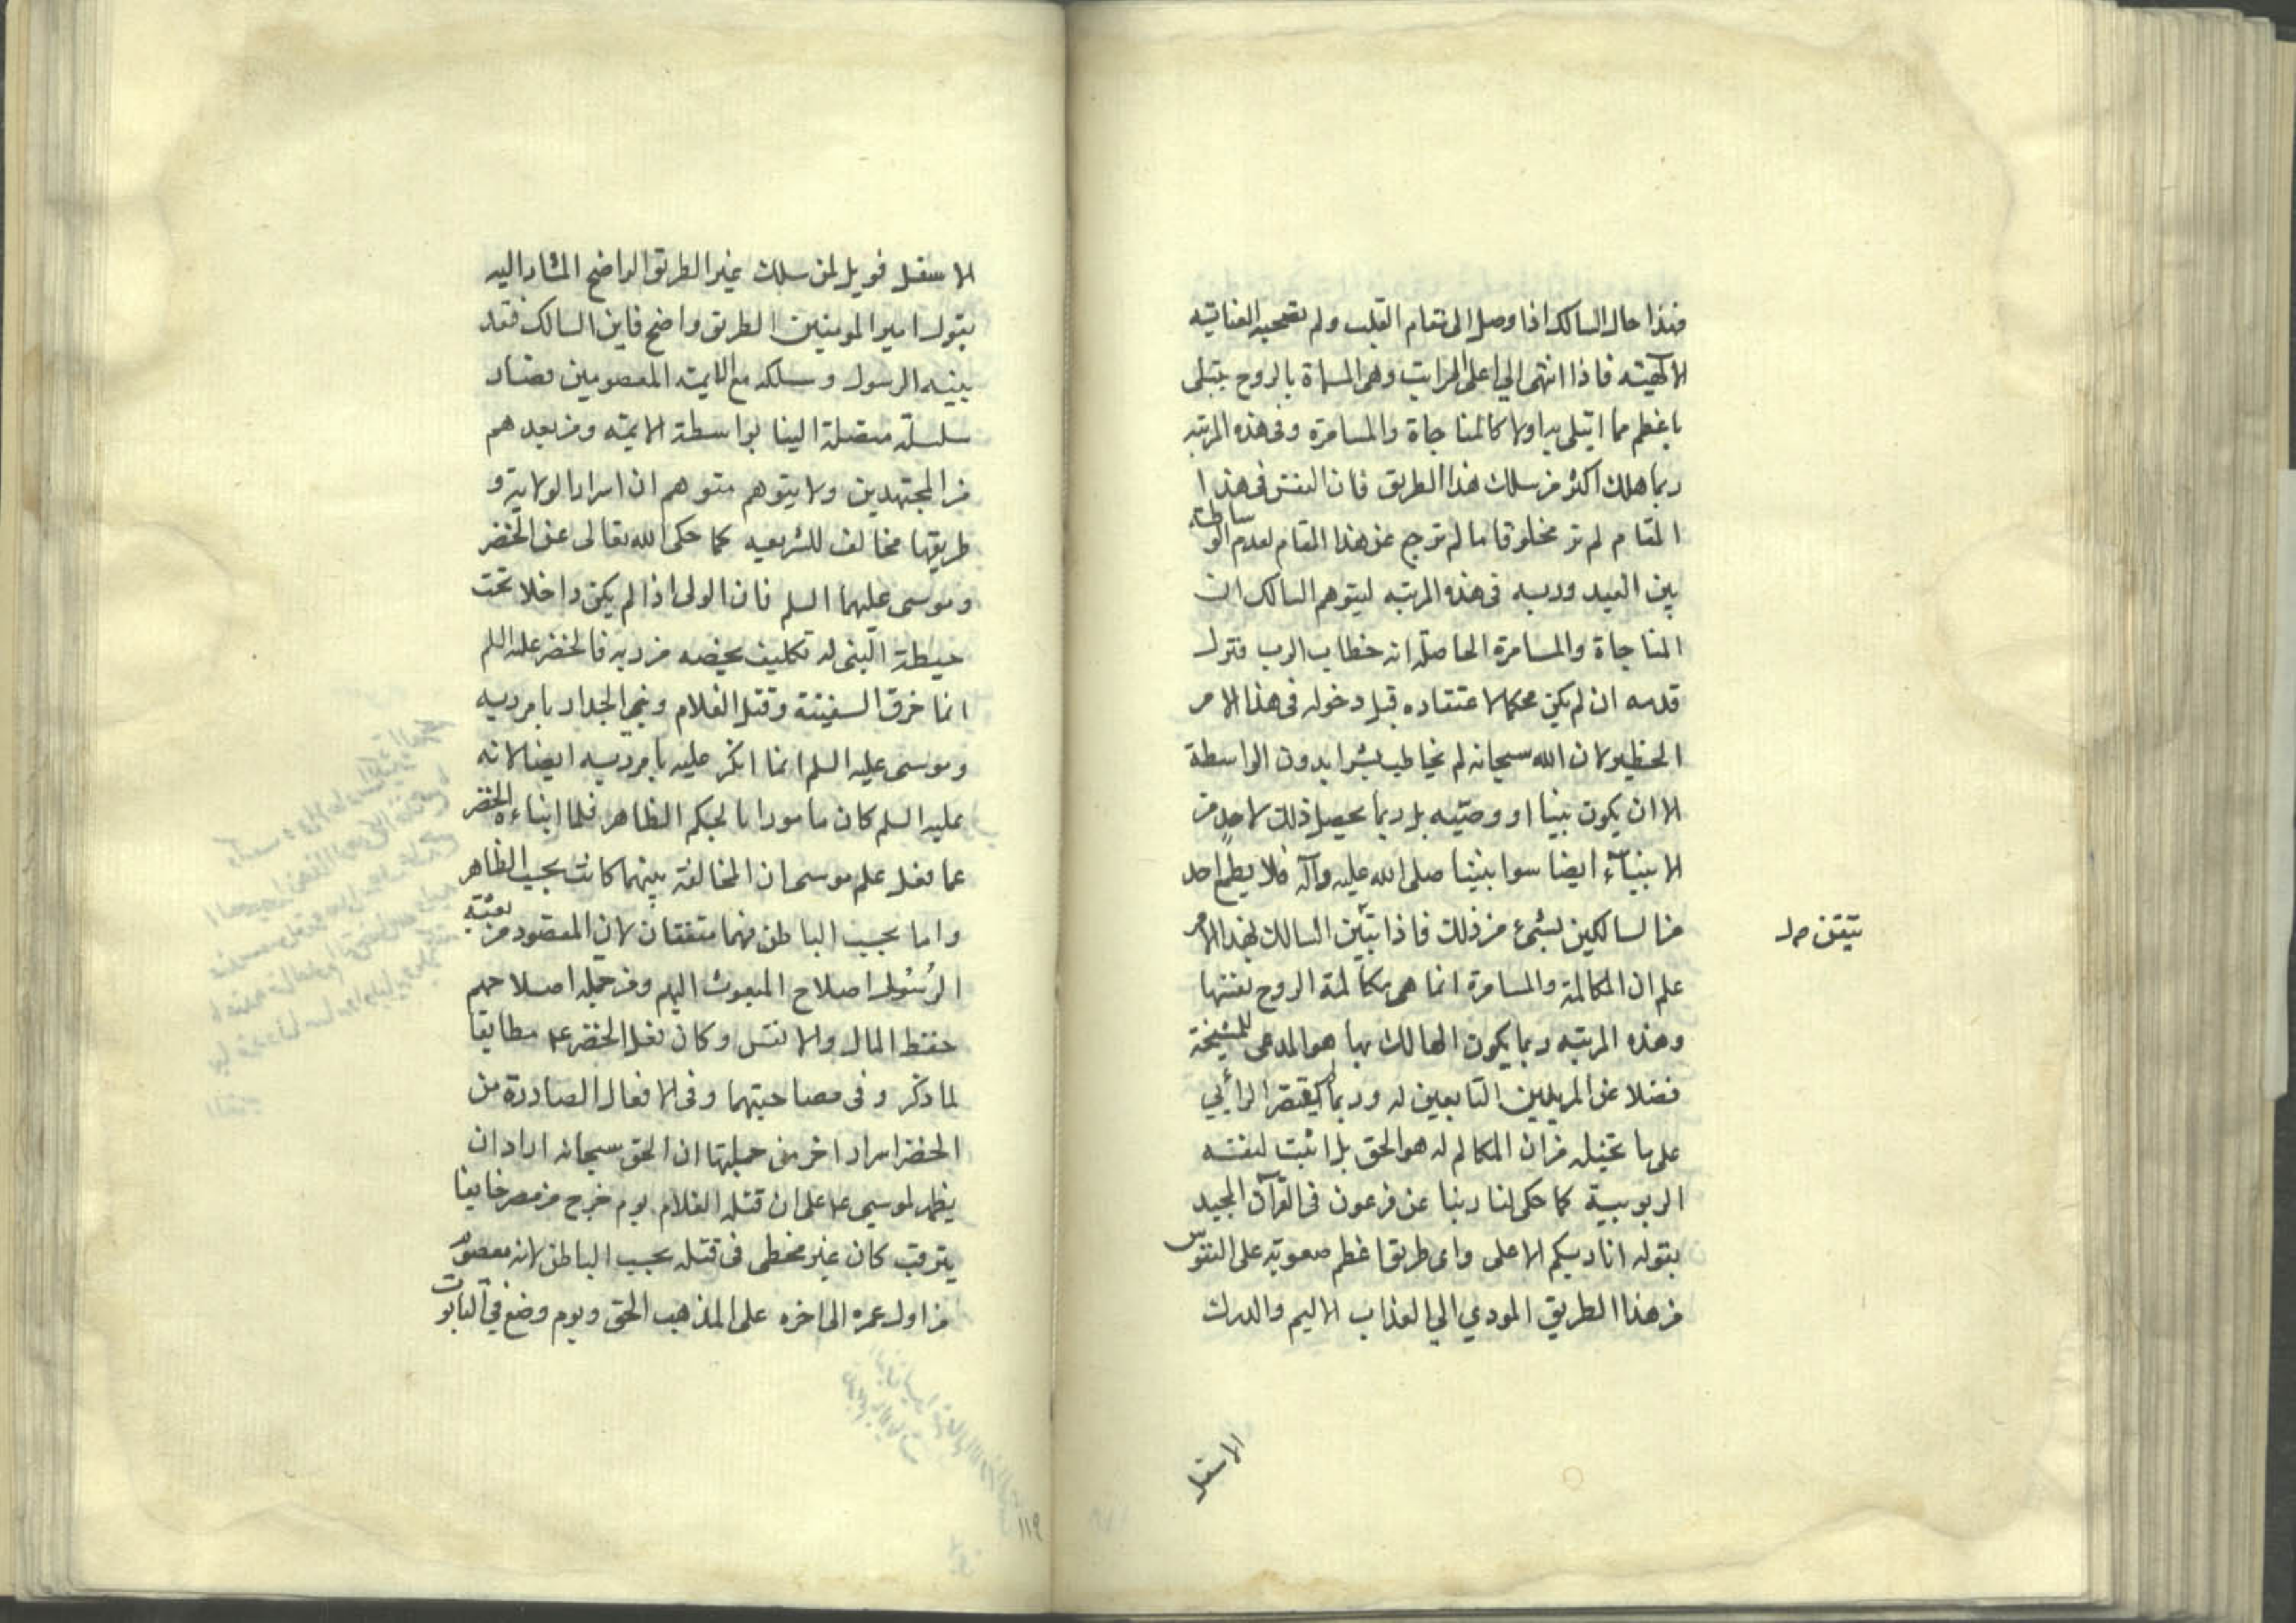 فهذا حال السالك اذا وصل الى مقام القلب ولم تصحبه العناية
الالهيته فاذا انتهى الي اعلى المراتب وهي المسماة بالروح يبتلى
باعظم مما ابتلى به اولا كالمناجاة والمسامرة وفى هذه المرتبه
ربما هلك اكثر من سلك هذا الطريق فان النفس فى هذا
المقام لم تر مخلوقا ما لم ترجع عن هذا المقام لعدم الواسطة
بين العبد وربه فى هذه المرتبه ليتوهم السالك ان
المناجاة والمسامرة الحاصلة انه خطاب الرب فتزل
قدمه ان لم يكن محكما لاعتقاده قبل دخوله فى هذا الامر
الخطير لان الله سبحانه لم يخاطب بشرا بدون الواسطة
الا ان يكون نبيا او وصيه بل ربما يحصل ذلك لاحد من
الانبيآء ايضا سوا نبينا صلى الله عليه وآله فلا يطمع احد
من السالكين بشىء من ذلك فاذا تبين السالك لهذا الامر
تيقن ص‍ل
علم ان المكالمة والمسامرة انما هى مكالمة الروح نفسها
وهذه المرتبه ربما يكون الهالك بها هو المدعى للمشيخة
فضلا عن المريدين التابعين له وربما لم يقتصر الرائي
على ما تخيله من ان المكالم له هو الحق بل اثبت لنفسه
الربوبية كما حكى لنا ربنا عن فرعون فى القرآن المجيد
بقوله انا ربكم الاعلى واى طريق اعظم صعوبة على النفوس
من هذا الطريق المودي الي العذاب الاليم والدرك
الاسفل
الاسفل فويل لمن سلك غير الطريق الواضح المشار اليه
بقول امير المومنين الطريق واضح فاين السالك فقد
بينه الرسول وسلكه مع الايمة المعصومين فصار
سلسلة متصلة الينا بواسطة الايمة ومن بعدهم
من المجتهدين ولا يتوهم متوهم ان اسرار الولاية و
طريقها مخالف للشريعيه كما حكى الله تعالى عن الخضر
وموسى عليهما السلم فان الولى اذا لم يكن داخلا تحت
حيطة النبى له تكليف يخصه من ربه فالخضر عليه السلم
انما خرق السفينة وقتل الغلام وبنى الجدار بامر ربه
وموسى عليه السلم انما انكر عليه بامر ربه ايضا لانه
عليه السلم كان مامورا بالحكم الظاهر فلما انباءه الخضر
عما فعل علم موسى ان المخالفة بينهما كانت بحسب الظاهر
واما بحسب الباطن فهما متفقان لان المقصود من بعثة
الرسول اصلاح المبعوث اليهم ومن جملة اصلاحهم
حفظ المال والانفس وكان فعل الخضر ع‍م مطابقا
لما ذكر وفى مصاحبتهما وفى الافعال الصادرة من
الخضر اسرار اخر من جملتها ان الحق سبحانه اراد ان
يظهر لموسى ع‍م على ان قتله الغلام يوم خرج من مصر خايفا
يترقب كان غير مخطى فى قتله بحسب الباطن لانه معصوم
من اول عمره الى اخره على المذهب الحق ويوم وضع في التابوت
١١٩